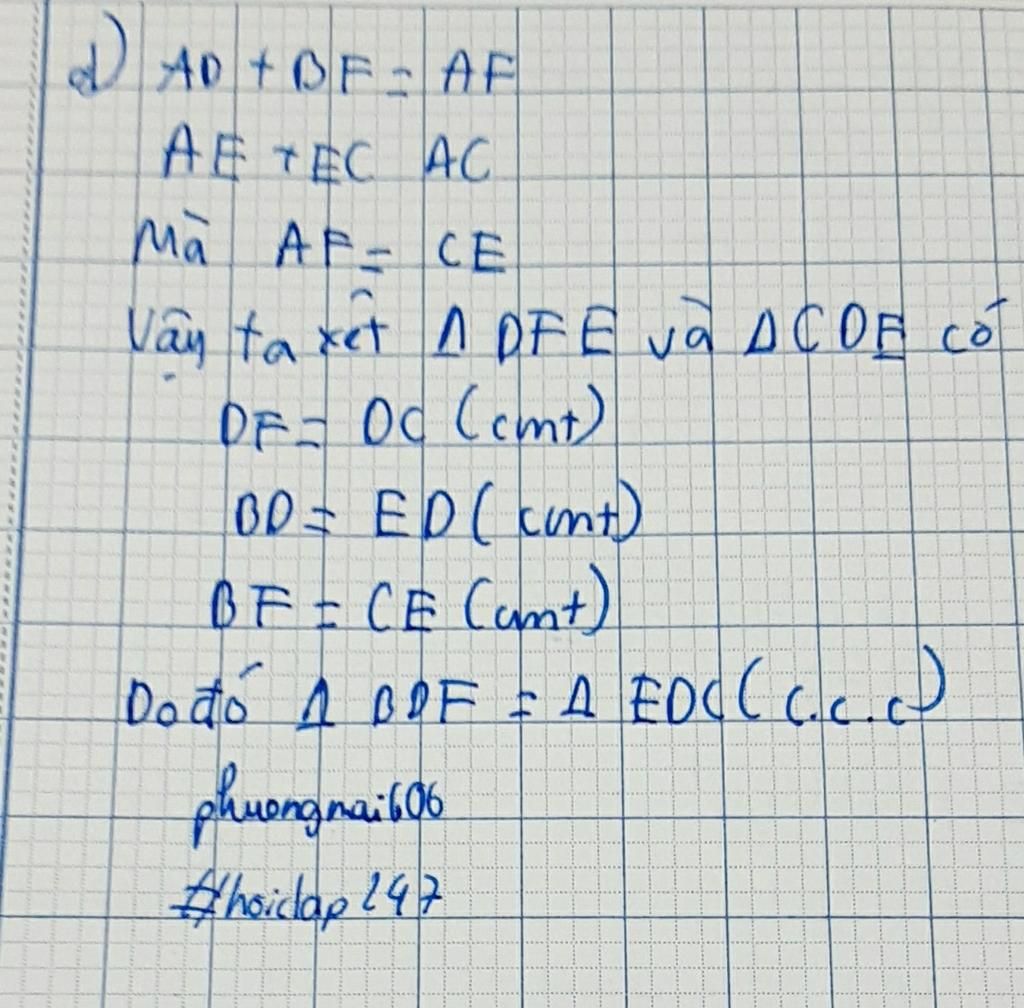 d) AD + BF = AF
AE + EC AC
Mà AF = CE
Vậy ta xét Δ DFE và Δ CDE có
DF = DC (cmt)
BD = ED (cmt)
BF = CE (cmt)
Do đó Δ BDF = Δ EDC (c.c.c)
phuongmai606
#hoidap247